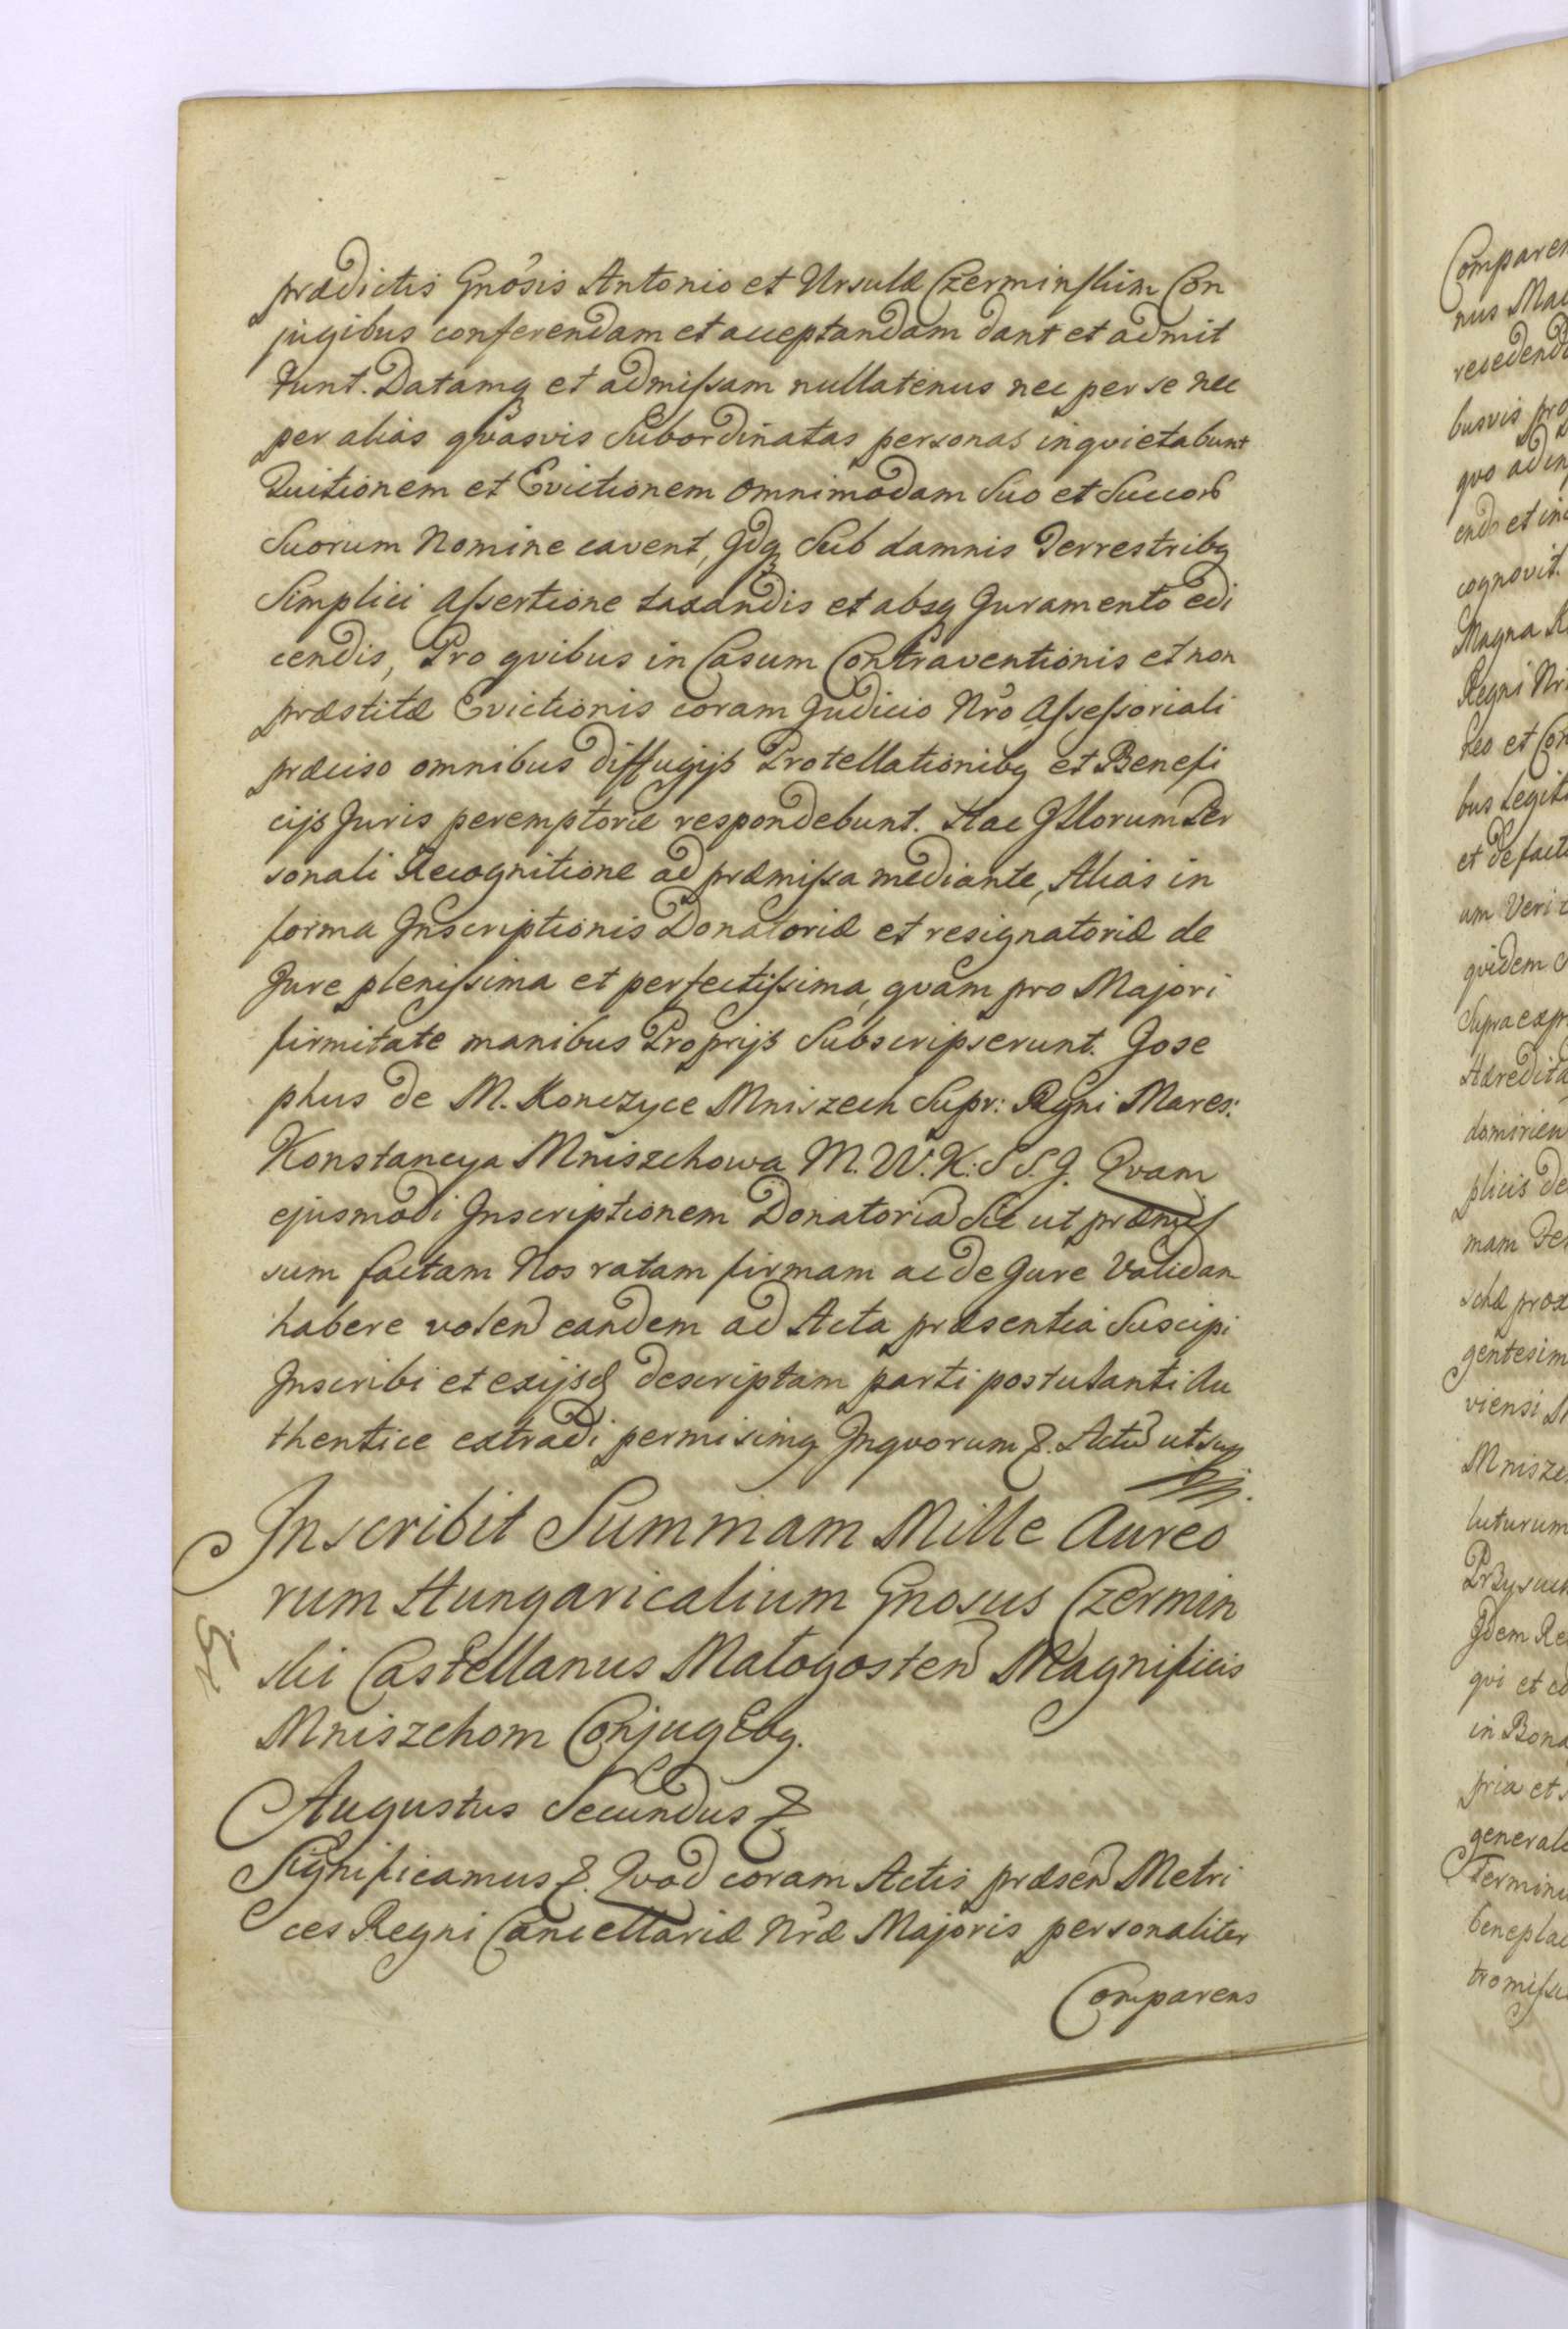 prædictis Gnosis Antonio et Ursulæ Czerminskim Con
jugibus conferendam et acceptandam dant et admit
tunt. Datamq et admissam nullatenus nec per se nec
per alias qvasvis Subordinatas personas inqvietabunt
Tuitionem et Evictionem omnimodam Suo et Succorb
Suorum Nomine cavent, Idq Sub damnis Terrestribq
Simplici Assertione taxandis et absq Juramento edi
cendis, Pro qvibus in Casum Contraventionis et non
præstitæ Evictionis coram Judicio Nro Assessoriali
præciso omnibus diffugijs Protellationibq et Benefi
cijs Juris peremptorie respondebunt. Hac Illorum Per
sonali Recognitione ad præmissa mediante, Alias in
forma Inscriptionis Donatoriæ et resignatoriæ de
Jure plenissima et perfectissima, qvam pro Majori
firmitate manibus Proprijs Subscripserunt. Jose
phus de M. Konczyce Mniszech Supr: Regni Mares:
Konstancya Mniszchowa M. W. K: S S. J. Qvam
ejusmodi Inscriptionem Donatoria Sic ut præmis
sum factam Nos ratam firmam ac de Jure Validam
habere volen eandem ad Acta præsentia Suscipi
Inscribi et exijsd descriptam parti postulanti Au
thentice extradi permisimq Inqvorum &. Actu ut sup
Inscribit Summam Mille Aureo
rum Hungaricalium Gnosus Czermin
ski Castellanus Malogosten Magnificis
Mniszchom Conjugibq.
Augustus Secundus &
Significamus &. Qvod coram Actis præsen Metri
ces Regni Cancellariæ Nræ Majoris personaliter
Comparens
Comparen
nus Ma
recedend
busvis pro
qvo ad in
end et in
cognovit.
Magna
Regni Nr
leo et Con
bus Legit
et de fact
um Veri
qvidem
Supra expr
Hæredita
domirien
plicis de
mam
schæ prox
gentesim
viensi
Mnisze
luturum
Przysuch
Idem Re
qvi et
in Bona
pria et
general
Termin
beneplac
tromiss